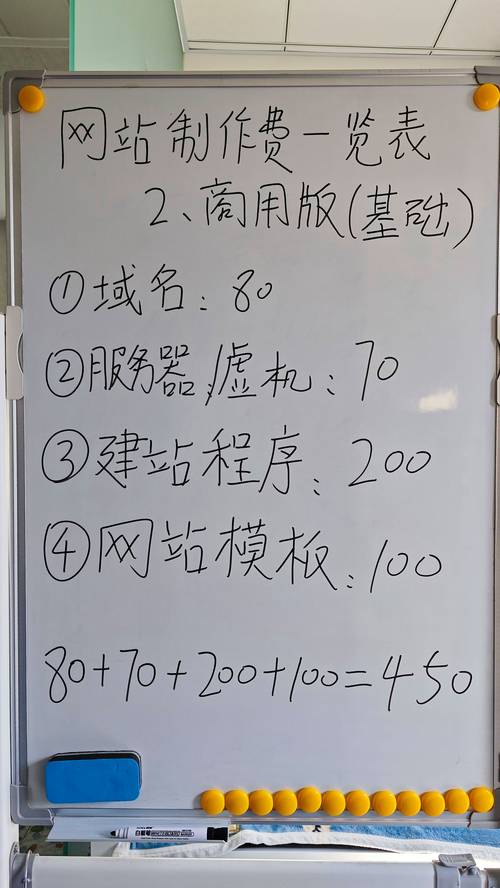 网站制作费一览表
2、商用版(基础)
①域名：80
②服务器,虚机：70
③建站程序：200
④网站模板：100
80+70+200+100=450